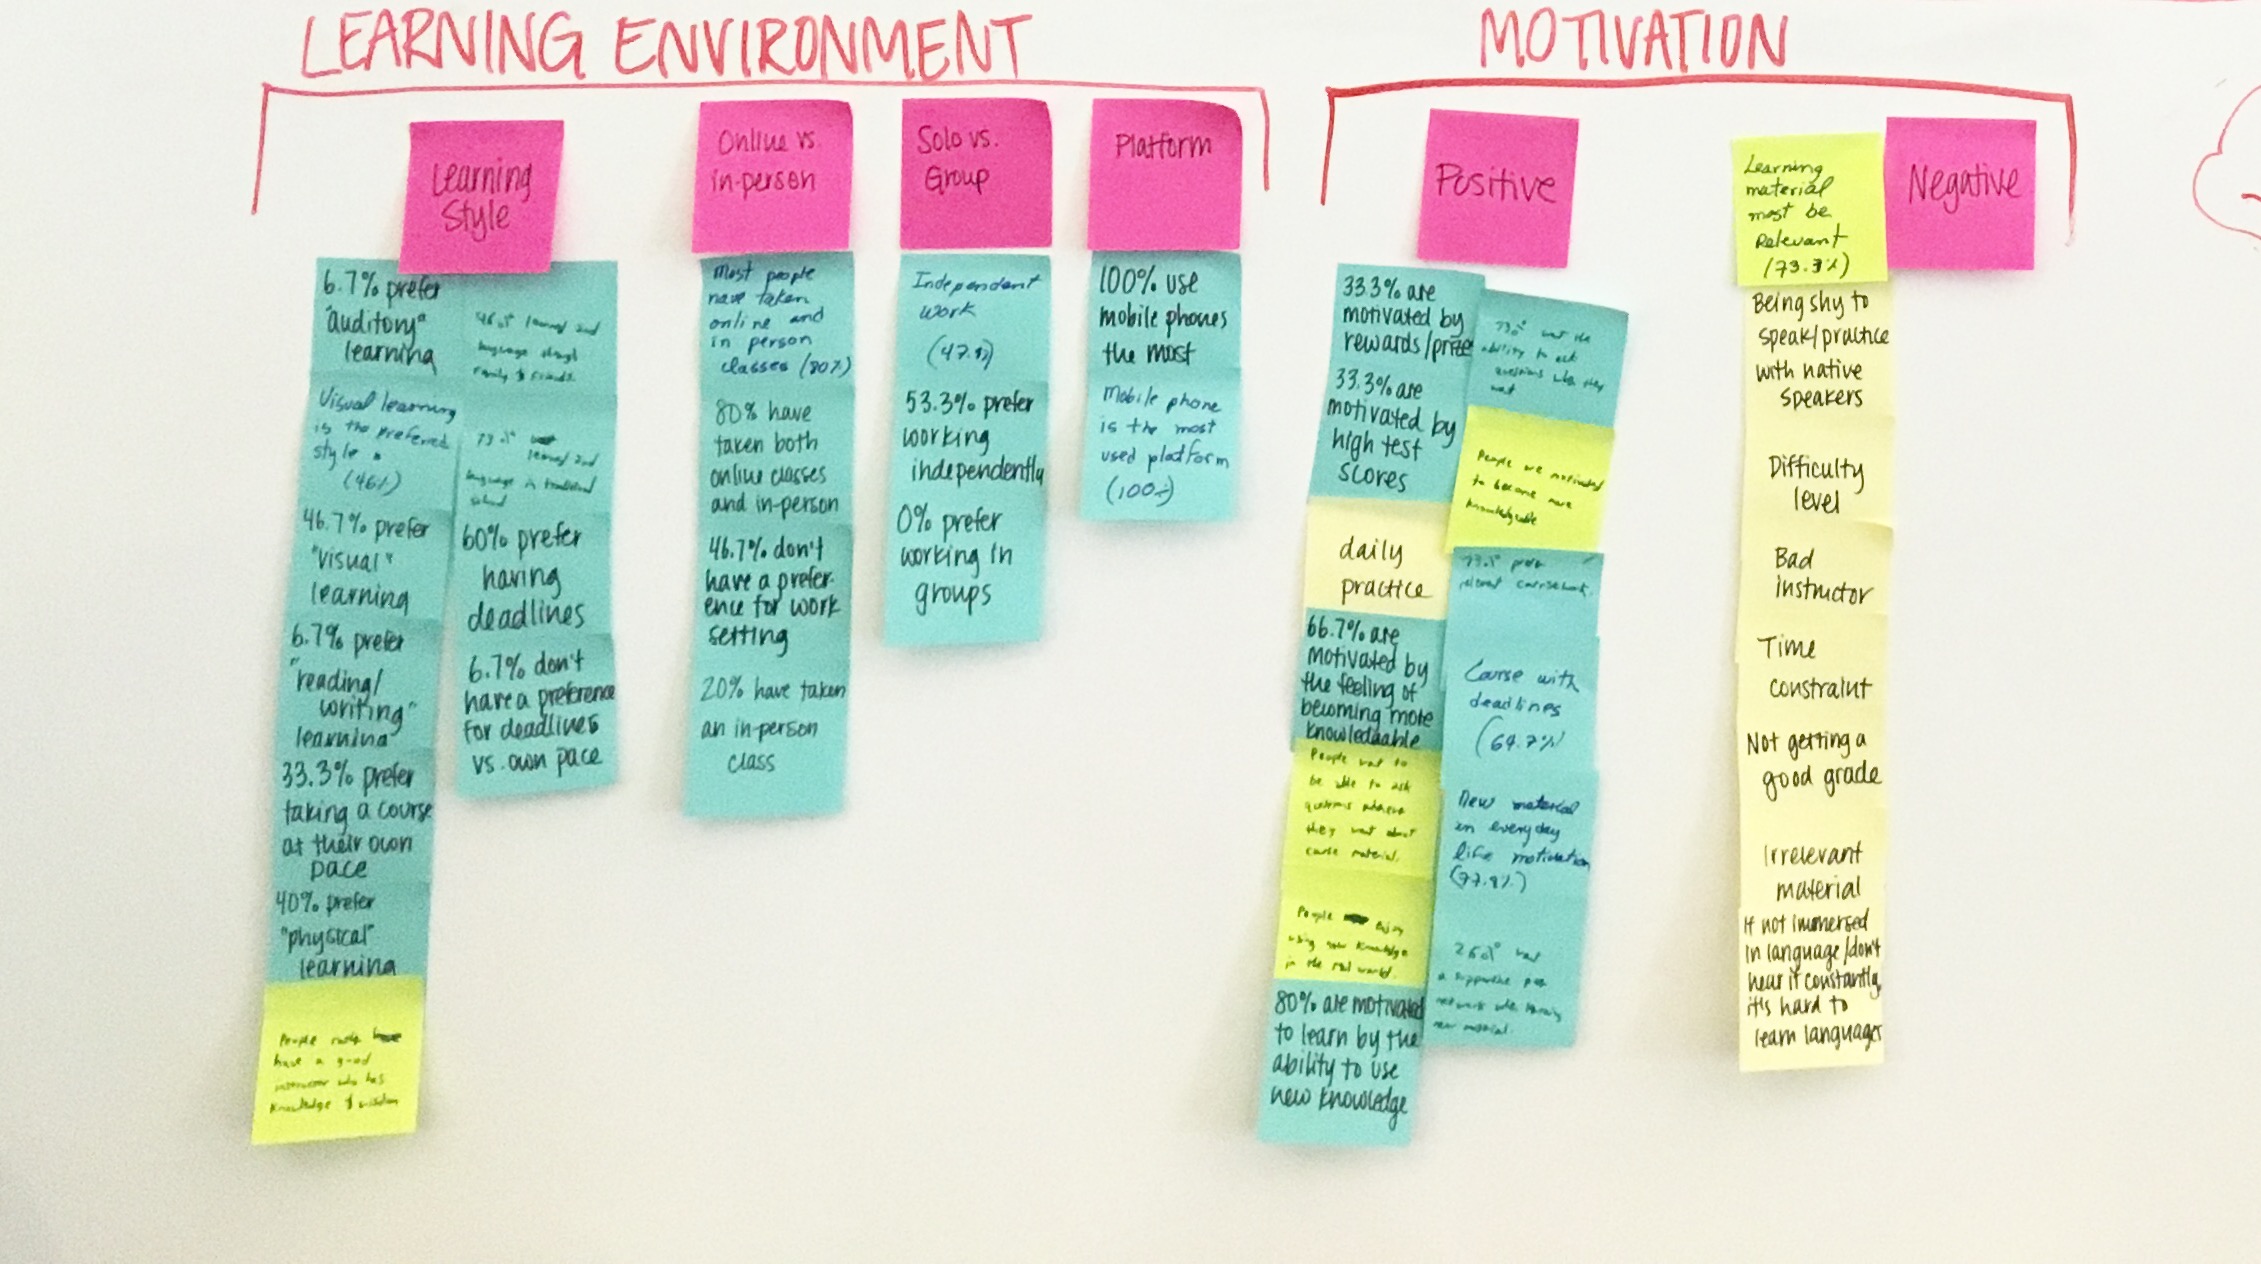 LEARNING ENVIRONMENT
Learning
Style
6.7% prefer
"auditory"
learning
Visual learning
is the preferred
style
(46%)
46.7% prefer
"visual"
learning
6.7% prefer
"reading/
writing"
learning
33.3% prefer
taking a course
at their own
pace
40% prefer
"physical"
learning
People
have a good
instructor who has
knowledge & wisdom
learned 2nd
language
family & friends
learned 2nd
language in traditional
school
60% prefer
having
deadlines
6.7% don't
have a preference
for deadlines
vs. own pace
Online vs
in-person
Most people
have taken
online and
in person
classes (80%)
80% have
taken both
online classes
and in-person
46.7% don't
have a prefer-
ence for work
setting
20% have taken
an in-person
class
Solo vs.
Group
Independent
work
53.3% prefer
working
independently
0% prefer
working in
groups
Platform
100% use
mobile phones
the most
Mobile phone
is the most
used platform
(100%)
MOTIVATION
Positive
33.3% are
motivated by
rewards/prize
33.3% are
motivated by
high test
scores
daily
practice
66.7% are
motivated by
the feeling of
becoming more
knowledgable
People want to
be able to ask
questions
they want about
course material.
People enjoy
using new knowledge
in the real world.
80% are motivated
to learn by the
ability to use
new knowledge
want the
ability to ask
questions when they
want
People are motivated
to become more
knowledgeable
relevant coursework.
Course with
deadlines
New material
in everyday
life motivation
want
a supportive
network while learning
new material.
Learning
material
must be
relevant
(73.3%)
Negative
Being shy to
speak/practice
with native
speakers
Difficulty
level
Bad
instructor
Time
constraint
Not getting a
good grade
Irrelevant
material
If not immersed
in language/don't
hear it constantly,
it's hard to
learn languages